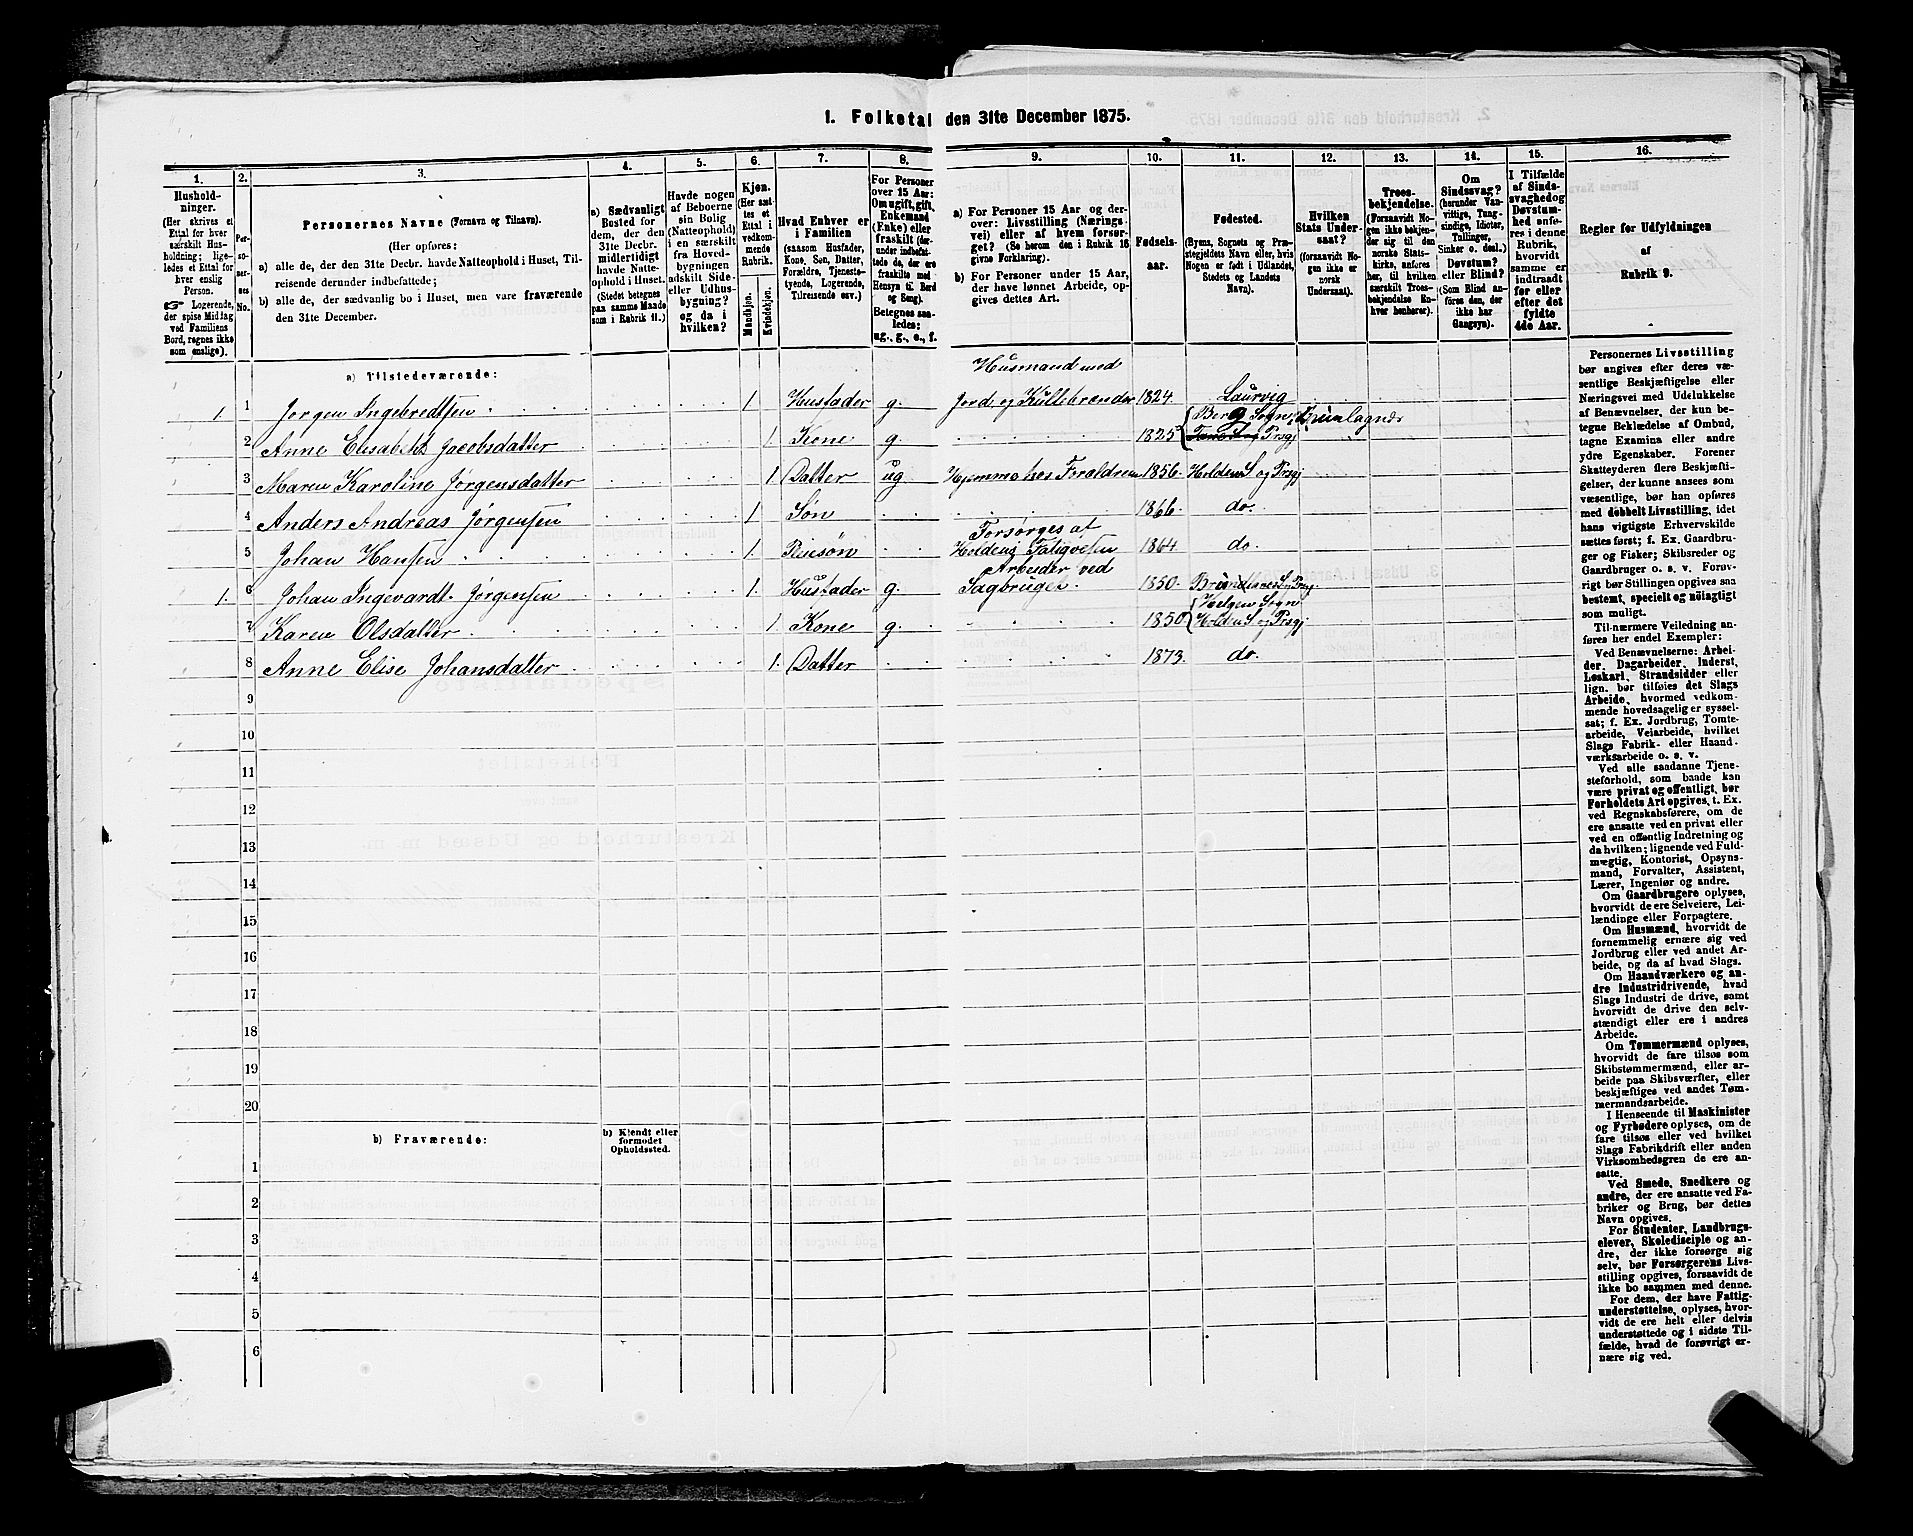 1. Folketal den 31te December 1875.
1.
Hushold-
ninger.
(Her skrives et
Ettal for hver
særskilt Hus-
holdning; lige-
ledes et Ettal for
hver enslig
Person.
☞ Logerende,
der spise Middag
ved Familiens
Bord, regnes ikke
som enslige).
2.
Per-
so-
ner-
nes
No.
3.
Personernes Navne (Fornavn og Tilnavn).
(Her opføres:
a) alle de, der den 31te Decbr. havde Natteophold i Huset, Til-
reisende derunder indbefattede;
b) alle de, der sædvanlig bo i Huset, men vare fraværende
den 31te December.
4.
a) Sædvanligt
Bosted for
dem, der den
31te Decbr.
midlertidigt
havde Natte-
ophold i Huset.
(Stedet betegnes
paa samme Maade
som i Rubrik 11.)
5.
Havde nogen
af Beboerne
sin Bolig
(Natteophold)
i en særskilt
fra Hoved-
bygningen
adskilt Side-
eller Udhus-
bygning?
og da i
hvilken?
6.
Kjøn.
(Her sæt-
tes et
Ettal i
vedkom-
mende
Rubrik.
Mandkjøn.
Kvindekjøn.
7.
Hvad Enhver er
i Familien
(saasom Husfader,
Kone, Søn, Datter,
Forældre, Tjeneste-
tyende, Logerende,
Tilreisende osv.)
8.
For Personer
over 15 Aar:
Om ugift, gift,
Enkemand
(Enke) eller
fraskilt (der-
under indbefat-
tede de, der ere
fraskilte med
Hensyn til Bord
og Seng).
Betegnes saa-
ledes:
ug., g., e., f.
9.
a) For Personer 15 Aar og der-
over: Livsstilling (Nærings-
vei) eller af hvem forsør-
get? (Se herom den i Rubrik 16
givne Forklaring).
b) For Personer under 15 Aar,
der have lønnet Arbeide, op-
gives dettes Art.
10.
Fødsels-
aar.
11.
Fødested.
(Byens, Sognets og Præ-
stegjeldets Navn eller, hvis
Nogen er født i Udlandet,
Stedets og Landets
Navn).
12.
Hvilken
Stats Under-
saat?
(forsaavidt No-
gen ikke er
norsk
Undersaat).
13.
Troes-
bekjendelse.
(Forsaavidt No-
gen ikke bekjen-
der sig til den
norske Stats-
kirke, anføres
her, til hvilken
særskilt Troes-
bekjendelse En-
hver henhører).
14.
Om
Sindssvag?
(herunder Van-
vittige, Tung-
sindige, Idioter,
Tullinger,
Sinker o. desl.)
Døvstum?
eller Blind?
(Som Blind an-
føres den, der
ikke har
Gangsyn).
15.
I Tilfælde
af Sinds-
svaghed og
Døvstum-
hed anfø-
res i denne
Rubrik,
hvorvidt
samme er
indtraadt
før eller
efter det
fyldte
4de Aar.
16.
Regler for Udfyldningen
af
Rubrik 9.
a) Tilstedeværende:
Husmand med
1. 1 Jørgen Ingebretsen 1 Husfader g. Jord og Kullebrænder 1824. Laurvig
2 Anne Elisabeth Jacobsdatter 1. Kone g. 1825 Berg Sogn, Brunlagnæs Prsgj
3 Maren Karoline Jørgensdatter 1 Datter ug Hjemme hos Forældrene 1856. Holden S. og Prsgj
4 Anders Andreas Jørgensen 1 Søn 1866. do.
Forsørges af
5 Johan Hansen 1. Pleiesøn Holdens Fatigvesen 1864 do.
Arbeider ved
1. 6 Johan Ingevardt Jørgensen 1. Husfader g. Sagbruget 1850. S. Prsgj.
Helgen Sogn
7 Karen Olsdatter 1. Kone g. 1850. Holden S. og Prsgj
8 Anne Elise Johansdatter 1. Datter 1873. do.
9
10
11
12
13
14
15
16
17
18
19
20
b) Fraværende:
b) Kjendt eller
formodet
Opholdssted.
1
2
3
4
5
6
Personernes Livsstilling
bør angives efter deres væ-
sentlige Beskjæftigelse eller
Næringsvei med Udelukkelse
af Benævnelser, der kun be-
tegne Beklædelse af Ombud,
tagne Examina eller andre
ydre Egenskaber. Forener
Skatteyderen flere Beskjæfti-
gelser, der kunne ansees som
væsentlige, bør han opføres
med dobbelt Livsstilling, idet
hans vigtigste Erhvervskilde
sættes først; f. Ex. Gaardbru-
ger og Fisker; Skibsreder og
Gaardbruger o. s. v. Forøv-
rigt bør Stillingen opgives saa
bestemt, specielt og nøiagtigt
som muligt.
Til nærmere Veiledning an-
føres her endel Exempler:
Ved Benævnelserne: Arbei-
der, Dagarbeider, Inderst,
Løskarl, Strandsidder eller
lign. bør tilføies det Slags
Arbeide, hvormed vedkom-
mende hovedsagelig er syssel-
sat; f. Ex. Jordbrug, Tomte-
arbeide, Veiarbeide, hvilket
Slags Fabrik- eller Haand-
værksarbeide o. s. v.
Ved alle saadanne Tjene-
steforhold, som baade kan
være privat og offentligt, bør
Forholdets Art opgives, t. Ex.
ved Regnskabsførere, om de
ere ansatte ved en privat eller
ved en offentlig Indretning og
da hvilken; lignende ved Fuld-
mægtig, Kontorist, Opsyns-
mand, Forvalter, Assistent,
Lærer, Ingeniør og andre.
Om Gaardbrugere oplyses,
hvorvidt de ere Selveiere, Lei-
lændinge eller Forpagtere.
Om Husmænd, hvorvidt de
fornemmelig ernære sig ved
Jordbrug eller ved andet Ar-
beide, og da af hvad Slags.
Om Haandværkere og an-
dre Industridrivende, hvad
Slags Industri de drive, samt
hvorvidt de drive den selv-
stændigt eller ere i andres
Arbeide.
Om Tømmermænd oplyses,
hvorvidt de fare tilsøs som
Skibstømmermænd, eller ar-
beide paa Skibsværfter, eller
beskjæftiges ved andet Tøm-
mermandsarbeide.
I Henseende til Maskinister
og Fyrbødere oplyses, om de
fare tilsøs eller ved hvilket
Slags Fabrikdrift eller anden
Virksomhedsgren de ere an-
satte.
Ved Smede, Snedkere og
andre, der ere ansatte ved Fa-
briker og Brug, bør dettes
Navn opgives.
For Studenter, Landbrugs-
elever, Skoledisciple og an-
dre, der ikke forsørge sig
selv, bør Forsørgerens Livs-
stilling opgives, forsaavidt de
ikke bo sammen med denne.
For dem, der have Fattig-
understøttelse, oplyses, hvor-
vidt de ere helt eller delvis
understøttede og i sidste Til-
fælde, hvad de forøvrigt er-
nære sig ved.